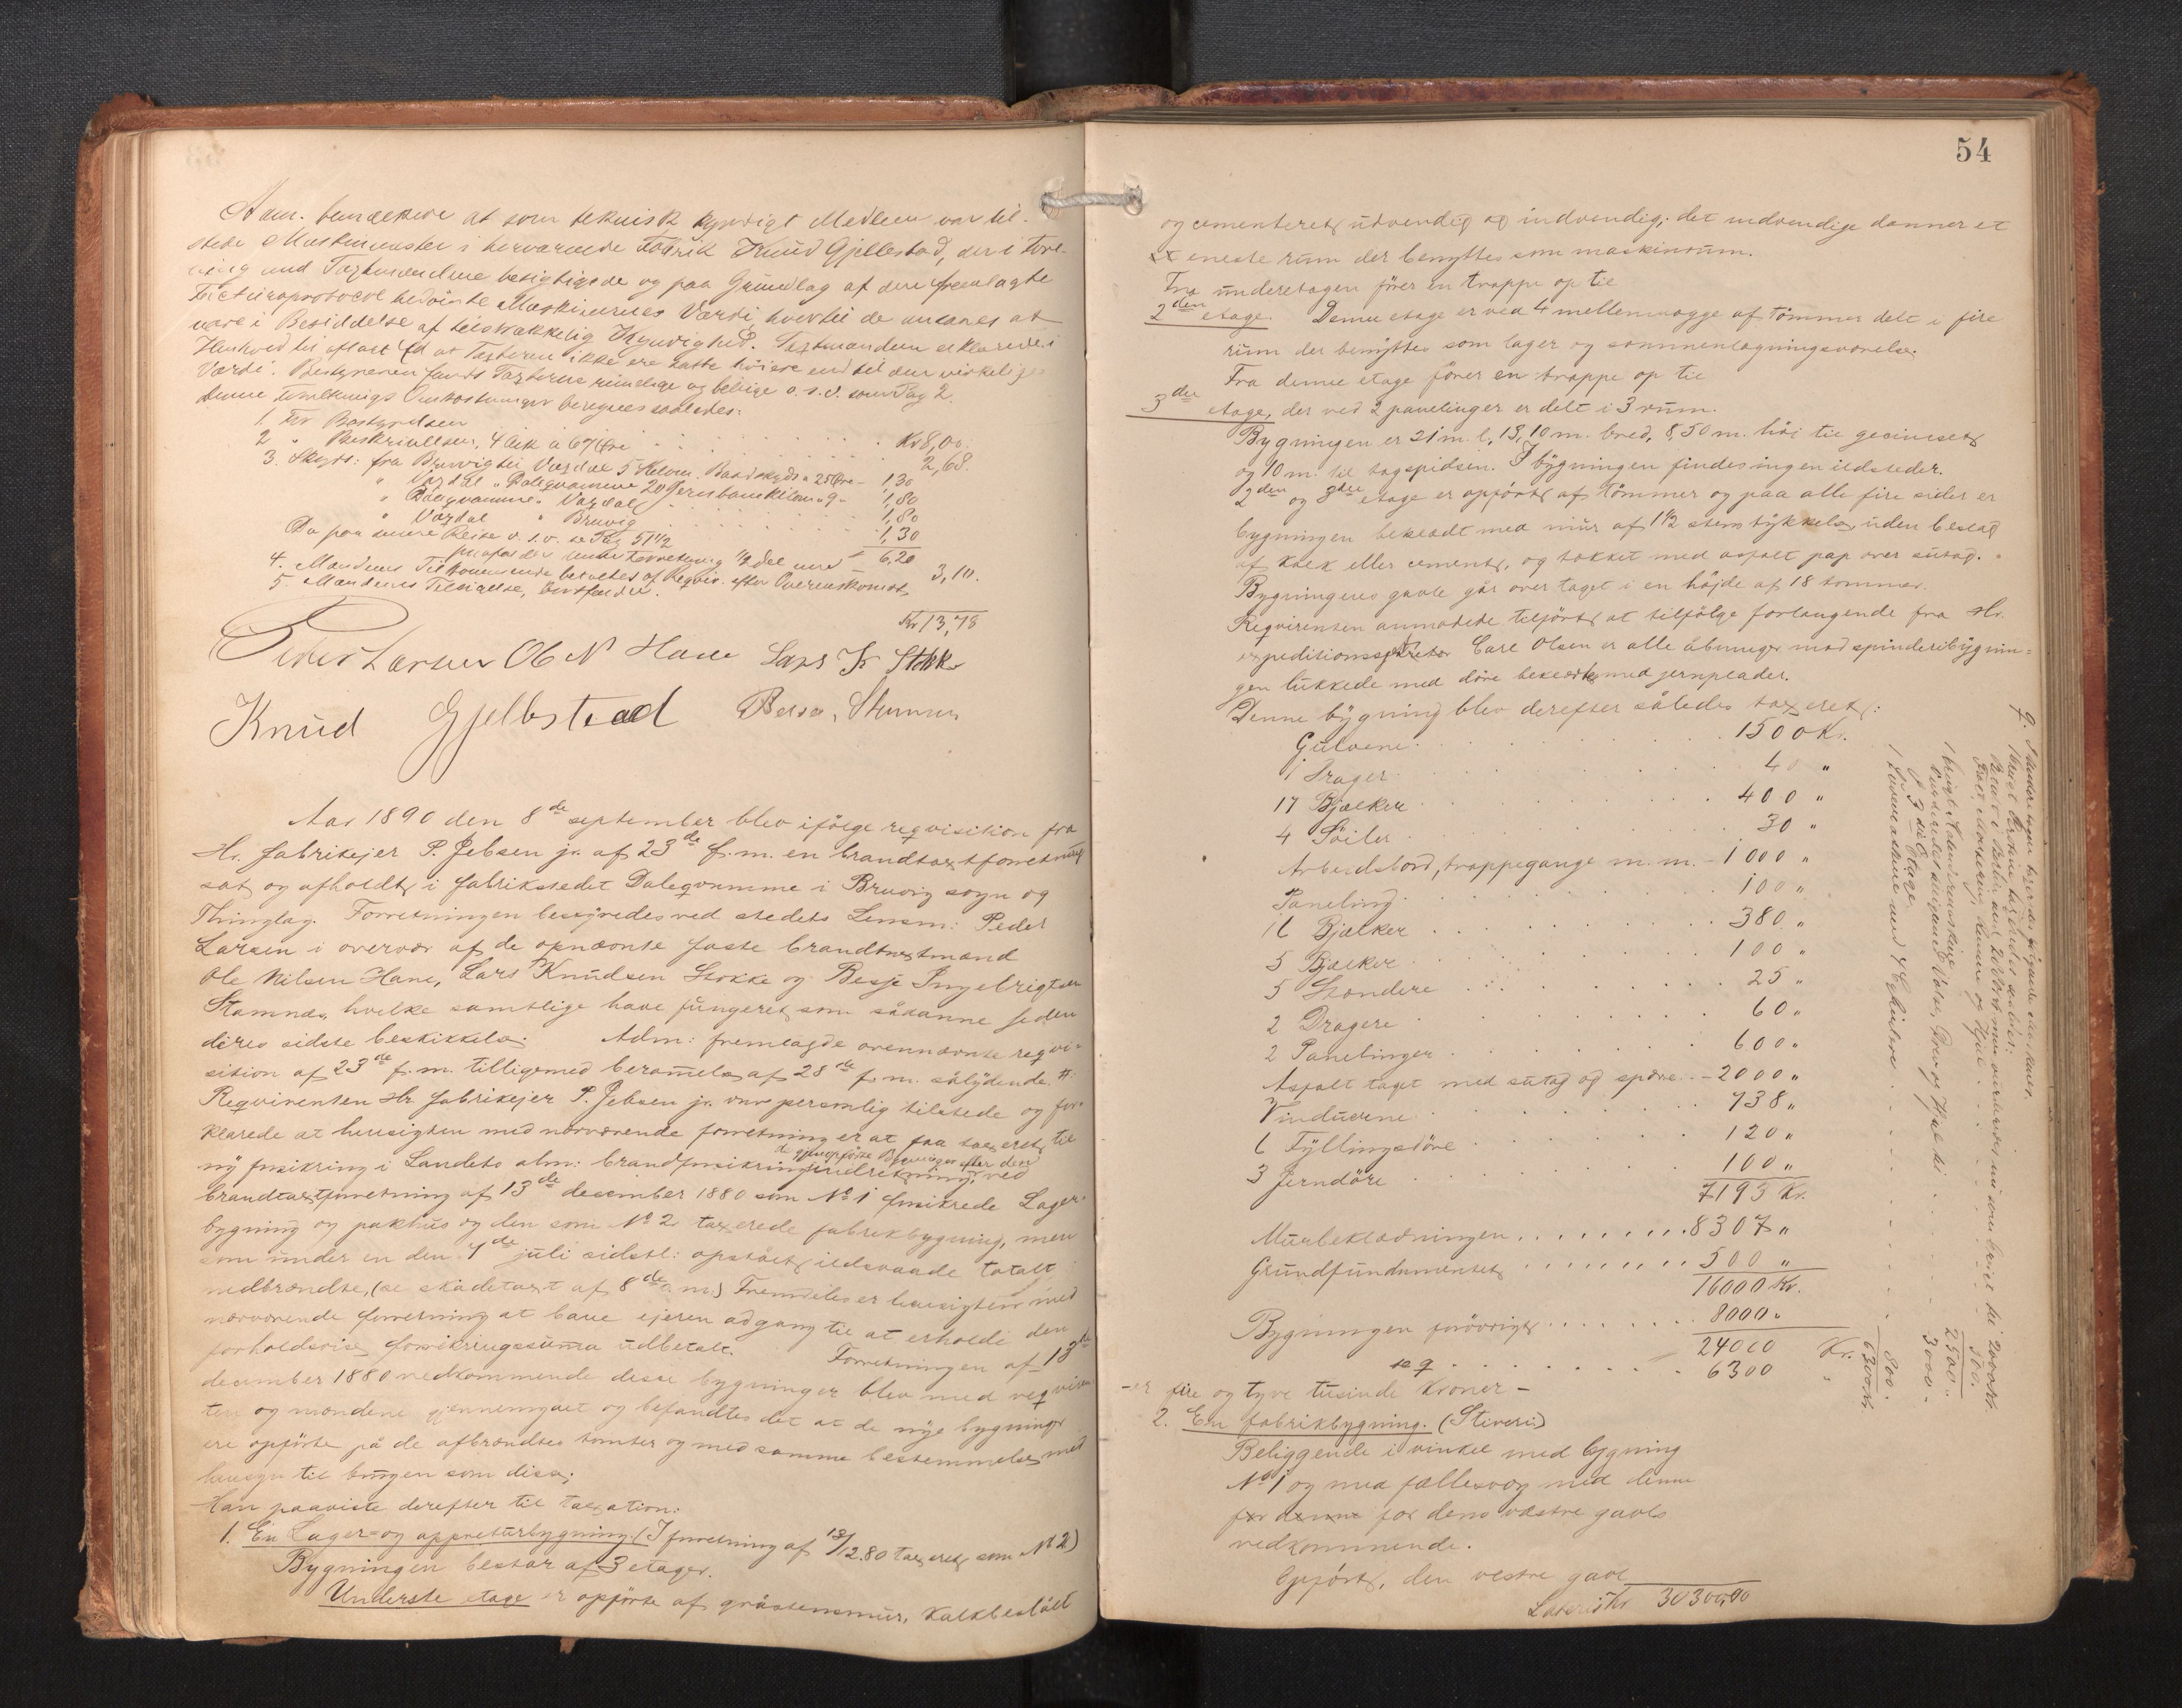 Adm. bemærkede at som teknisk kyndigt Medlem var til-
stede Maskinmester i herværende Fabrik Knud Gjellestad, der i Fore-
ning med Taxtmændene besigtigede og paa Grundlag af den fremlagte
Facturaprotocol bedömte Maskinernes Værdi, hvortil de ansaaes at
være i Besiddelse af tilstrækkelig Kyndighed. Taxtmændene erklærede i
Henhold til aflagt Ed at Taxterne ikke ere satte höiere end til den virkelige
Værdi. Bestyreren fandt Taxterne rimelige og billige o. s. v. som Pag 2.
denne Forretnings Omkostninger beregnes saaledes:
1. For Bestyrelsen . . . Kr 8,00.
2 " Beskrivelsen, 4 Ark á 67 Öre . . . 2,68.
3. Skyds: fra Bruvig til Vaxdal 5 Kilom. Baadskyds a 25 Öre - 1,30
" Vaxdal " Dalegvamme 20 Jernbanekilom " 9 - 1,80
" Dalegvamme " Vaxdal . . . 1,80
" Vaxdal " Bruvig . . . 1,30
Da paa samme Reise o. s. v. se Pag 51 1/2 6,20
denne Forretning 1/2 del med - 3,10.
4. Mændenes Tilkommende betales af Reqvir. efter Overenskomst
5. Mændenes Tilsigelse,
Kr 13,78
Peder Larsen Ole N Hane Lars K Stokke
Knud Gjellestad Besse. Stamnes
Aar 1890 den 8de september blev ifölge reqvisition fra
Hr. fabrikejer P. Jebsen jr. af 23de f. m. en brandtaxtforretning
sat og afholdt i fabrikstedet Dalegvamme i Bruvig sogn og
Thinglag. Forretningen bestyredes ved stedets Lensm: Peder
Larsen i overvær af de opnævnte faste brandtaxtmænd
Ole Nilsen Hane, Lars Knudsen Stokke og Besse Ingebrigtsen
Stamnes, hvilke samtlige have fungeret som sådanne siden
deres sidste beskikkelse. Adm: fremlagde ovennævnte reqvi-
sition af 23de f. m. tilligemed berammelse af 28de f. m. sålydende #:
Reqvirenten Hr. fabrikejer P. Jebsen jr. var personlig tilstede og for-
klarede at hensigten med nærværende forretning er at faa taxeret til
ny forsikring i Landets alm: brandforsikringsindretning de gjenopförte Bygninger efter den ved
brandtaxtforretning af 13de december 1880 som No 1 forsikrede Lager-
bygning og pakhus og den som No 2 taxerede fabrikbygning, men
som under en den 7de juli sidstl: opstået ildsvaade totalt
nedbrændte, (se skadetaxt af 8de s. m.) Fremdeles er hensigten med
nærværende forretning at bane ejeren adgang til at erholde den
forholdsvise forsikringssumma udbetalt. Forretningen af 13de
december 1880 vedkommende disse bygninger blev med reqviren
ten og mændene gjennemgaaet og befandtes det at de nye bygninger
ere opförte på de afbrændtes tomter og med samme bestemmelse med
hensyn til brugen som disse.
Han paaviste derefter til taxation:
1. En Lager- og appreturbygning. (I forretning af 13/12.80 taxeret som No 2)
Bygningen består af 3 etager.
Underste etage er opförte af gråstensmur, kalkbeslåed
54
og cementeret udvendig og indvendig; det indvendige danner et
eneste rum der benyttes som maskinrum.
Fra underetagen förer en trappe op til
2den etage. Denne etage er ved 4 mellemvægge af tömmer delt i fire
rum der benyttes som lager og sammenlægningsværelse.
Fra denne etage förer en trappe op til
3die etage, der ved 2 panelinger er delt i 3 rum.
Bygningen er 21 m. l., 13,10 m. bred, 8,50 m. höi til gesimset
og 10 m. til tagspidsen. I bygningen findes ingen ildsteder.
2den og 3die etage er opfört af tömmer og paa alle fire sider er
bygningen beklædt med mur af 1 1/2 stens tykkelse uden beslag
af kalk eller cement, og tækket med asfalt pap over sutag.
Bygningens gavle går over taget i en höjde af 18 tommer.
Reqvirenten anmodede tilfört at tilfölge forlangende fra Hr.
expeditionssekretær Carl Olsen er alle åbninger mod spinderibygnin-
gen lukkede med döre beklædt med jernplader.
Denne bygning blev derefter således taxeret:
Gulvene . . . 1500 Kr.
1 Drager . . . 40 "
17 Bjælker . . . 400 "
4 Söiler . . . 30 "
Arbeidsbord, trappegange m. m. - 1000 "
Paneling . . . 100 "
16 Bjælker . . . 380 "
5 Bjælker . . . 100 "
5 Stændere . . . 25 "
2 Dragere . . . 60 "
2 Panelinger . . . 600 "
Asfalt taget med sutag og spære - 2000 "
Vinduerne . . . 738 "
6 Fyllingsdöre . . . 120 "
3 Jerndöre . . . 100 "
7193 Kr.
Murbeklædningen . . . 8307 "
Grundfundamentet . . . 500 "
16000 Kr.
Bygningen forövrigt . . . 8000 "
24000
se q . . . 6300
- er fire og tyve tusinde Kroner -
2. En fabrikbygning. (Stiveri)
Beliggende i vinkel med bygning
No 1 og med fællesvæg med denne
for denne for dens vestre gavls
vedkommende.
Opfört, den vestre gavl
Lateris Kr 30300,00
q. I Underetagen
1 brugt Maskine
2000 Kr.
500.
2500 "
1 brugt Kalandermaskine
3000 -
I 3die Etage
1 Dukkemaskine med 4 Cylindere . . . 800.
Kr. 6300 Kr.